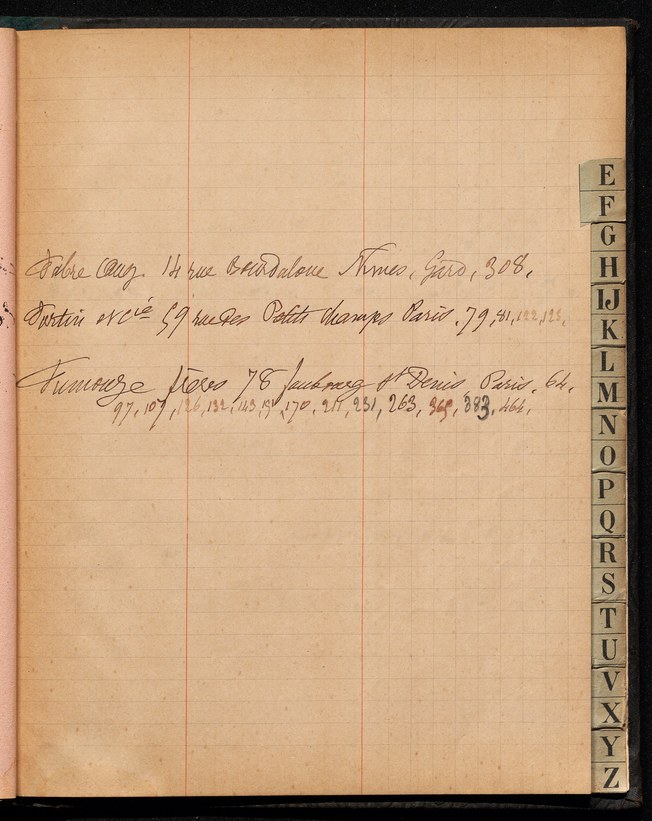 Fabre Aug. 14 rue Bourdaloue Nimes, Gard, 308,
Fortin et Cie 59 rue des Petits champs Paris. 79, 81, 122, 123,
Fumouze frères 78 faubourg St Denis, Paris. 64,
97, 107, 126, 132, 143, 170, 217, 231, 263, 365, 383, 464,
E
F
G
H
IJ
K
L
M
N
O
P
Q
R
S
T
U
V
X
Y
Z